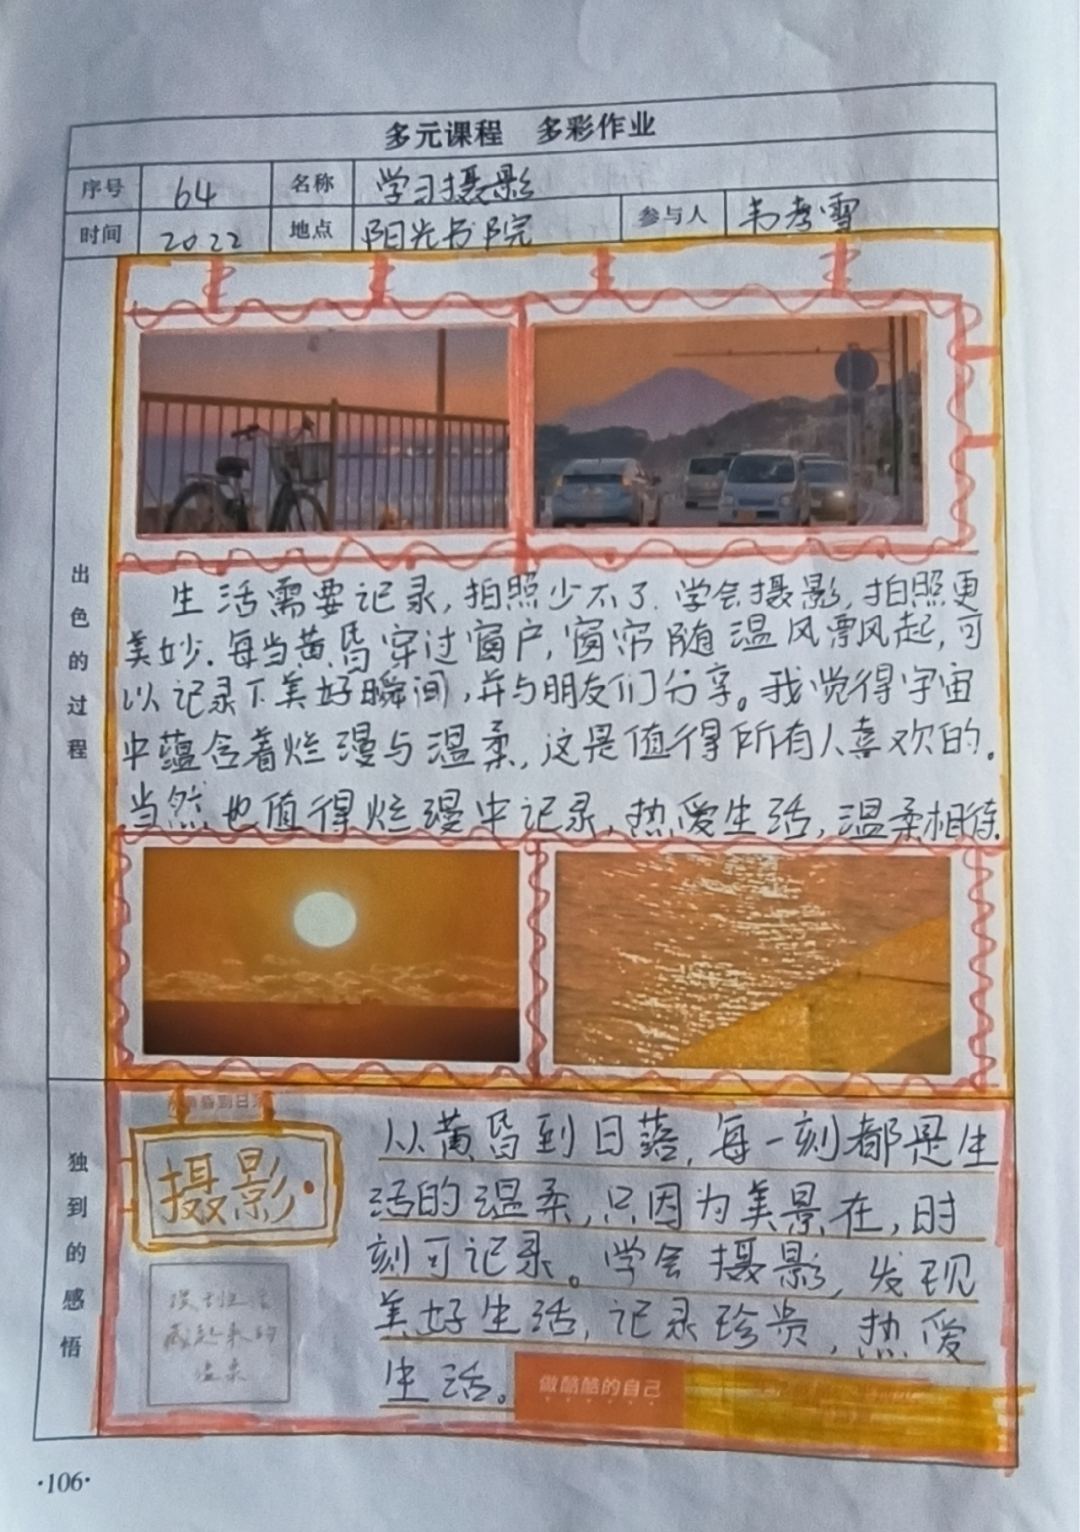 多元课程 多彩作业
序号 64 名称 学习摄影
时间 2022 地点 阳光书院 参与人 韦孝雪
出色的过程
生活需要记录,拍照少不了.学会摄影,拍照更
美妙.每当黄昏穿过窗户,窗帘随温风漂风起,可
以记录下美好瞬间,并与朋友们分享。我觉得宇宙
中蕴含着烂漫与温柔,这是值得所有人喜欢的.
当然也值得烂漫中记录,热爱生活,温柔相待.
独到的感悟
摄影
从黄昏到日落,每一刻都是生
活的温柔,只因为美景在,时
刻可记录。学会摄影,发现
美好生活,记录珍贵,热爱
生活。
做酷酷的自己
·106·